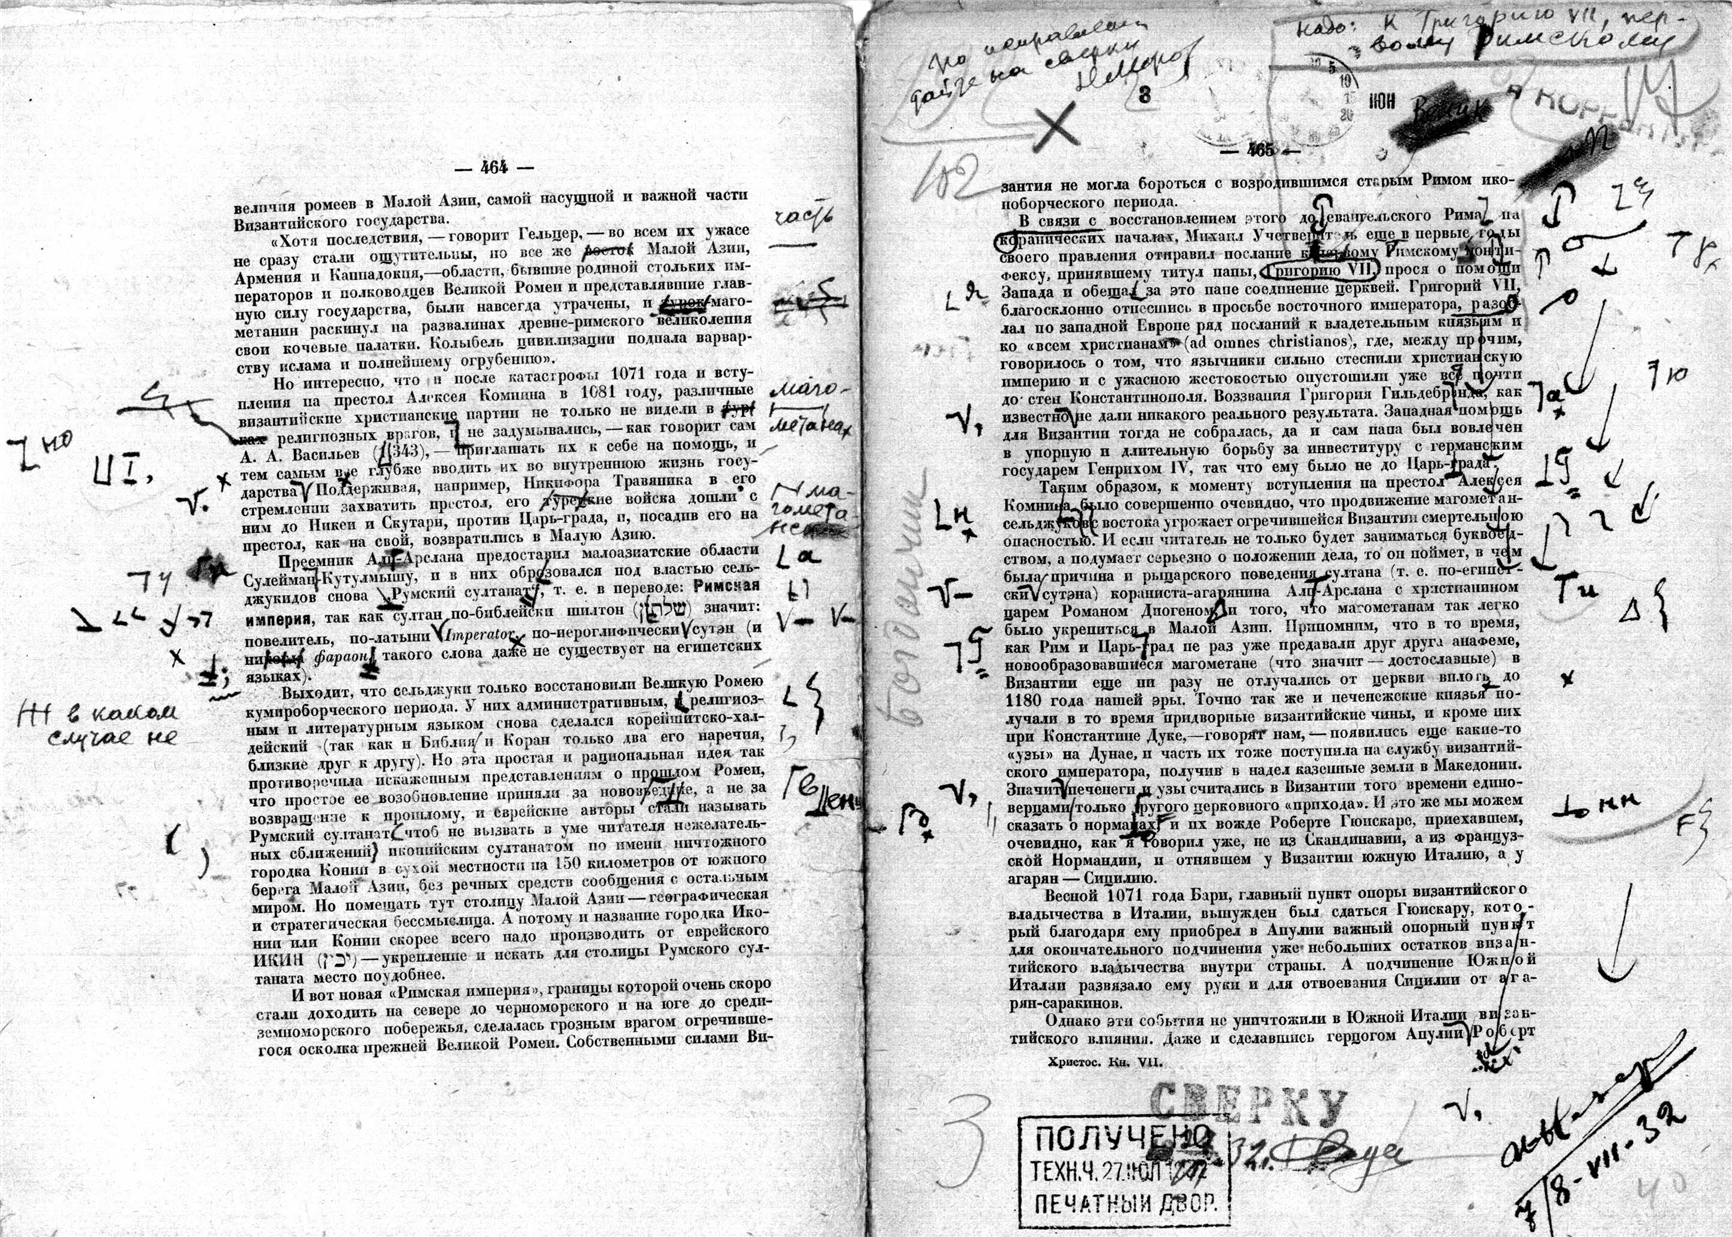 — 464 —
величия ромеев в Малой Азии, самой насущной и важной части
Византийского государства.
«Хотя последствия, — говорит Гельцер, — во всем их ужасе
не сразу стали ощутительны, но все же росток Малой Азии,
Армения и Каппадокия,—области, бывшие родиной стольких им-
ператоров и полководцев Великой Ромеи и представлявшие глав-
ную силу государства, были навсегда утрачены, и маго-
метанин раскинул на развалинах древне-римского великолепия
свои кочевые палатки. Колыбель цивилизации подпала варвар-
ству ислама и полнейшему огрубению».
Но интересно, что и после катастрофы 1071 года и всту-
пления на престол Алексея Комнина в 1081 году, различные
византийские христианские партии не только не видели в тур-
ках религиозных врагов, и не задумывались, — как говорит сам
А. А. Васильев (343), — приглашать их к себе на помощь, и
тем самым все глубже вводить их во внутреннюю жизнь госу-
дарства Поддерживая, например, Никифора Травяника в его
стремлении захватить престол, его турецкие войска дошли с
ним до Никеи и Скутари, против Царь-града, и, посадив его на
престол, как на свой, возвратились в Малую Азию.
Преемник Алп-Арслана предоставил малоазиатские области
Сулейман-Кутулмышу, и в них образовался под властью сель-
джукидов снова Румский султанат, т. е. в переводе: Римская
империя, так как султан по-библейски шилтон (שלתון) значит:
повелитель, по-латыни Imperator, по-иероглифически сутэн (и
никогда фараон, такого слова даже не существует на египетских
языках).
Выходит, что сельджуки только восстановили Великую Ромею
кумироборческого периода. У них административным, религиоз-
ным и литературным языком снова сделался корейшитско-хал-
дейский (так как и Библия и Коран только два его наречия,
близкие друг к другу). Но эта простая и рациональная идея так
противоречила искаженным представлениям о прошлом Ромеи,
что простое ее возобновление приняли за нововведение, а не за
возвращение к прошлому, и еврейские авторы стали называть
Румский султанат чтоб не вызвать в уме читателя нежелатель-
ных сближений иконийским султанатом по имени ничтожного
городка Конии в сухой местности на 150 километров от южного
берега Малой Азии, без речных средств сообщения с остальным
миром. Но помещать тут столицу Малой Азии — географическая
и стратегическая бессмыслица. А потому и название городка Ико-
нии или Конии скорее всего надо производить от еврейского
ИКИН (יכין) — укрепление и искать для столицы Румского сул-
таната место поудобнее.
И вот новая «Римская империя», границы которой очень скоро
стали доходить на севере до черноморского и на юге до среди-
земноморского побережья, сделалась грозным врагом огречивше-
гося осколка прежней Великой Ромеи. Собственными силами Ви-
часть
маго-
метанах
маго-
метан-
но
Ж в каком
случае не
По исправлении
дайте на сверку
НМороз
Надо: к Григорию VII, пер-
вому Римскому
3
июн
102
— 465 —
зантия не могла бороться с возродившимся старым Римом ико-
ноборческого периода.
В связи с восстановлением этого до евангельского Рима на
коранических началах, Михаил Учетверитель еще в первые годы
своего правления отправил послание к первому Римскому понти-
фексу, принявшему титул папы, Григорию VII, прося о помощи
Запада и обещал за это папе соединение церквей. Григорий VII,
благосклонно отнесшись в просьбе восточного императора, разос-
лал по западной Европе ряд посланий к владетельным князьям и
ко «всем христианам» (ad omnes christianos), где, между прочим,
говорилось о том, что язычники сильно стеснили христианскую
империю и с ужасною жестокостью опустошили уже все почти
до стен Константинополя. Воззвания Григория Гильдебранда, как
известно не дали никакого реального результата. Западная помощь
для Византии тогда не собралась, да и сам папа был вовлечен
в упорную и длительную борьбу за инвеституру с германским
государем Генрихом IV, так что ему было не до Царь-града.
Таким образом, к моменту вступления на престол Алексея
Комнина, было совершенно очевидно, что продвижение магометан-
сельджуков с востока угрожает огречившейся Византии смертельною
опасностью. И если читатель не только будет заниматься буквоед-
ством, а подумает серьезно о положении дела, то он поймет, в чем
была причина и рыцарского поведения султана (т. е. по-египет-
ски сутэна) кораниста-агарянина Алп-Арслана с христианином
царем Романом Диогеном и того, что магометанам так легко
было укрепиться в Малой Азии. Припомним, что в то время,
как Рим и Царь-град не раз уже предавали друг друга анафеме,
новообразовавшиеся магометане (что значит — достославные) в
Византии еще ни разу не отлучались от церкви вплоть до
1180 года нашей эры. Точно так же и печенежские князья по-
лучали в то время придворные византийские чины, и кроме них
при Константине Дуке,—говорят нам, — появились еще какие-то
«узы» на Дунае, и часть их тоже поступила на службу византий-
ского императора, получив в надел казенные земли в Македонии.
Значит печенеги и узы считались в Византии того времени едино-
верцами только другого церковного «прихода». И это же мы можем
сказать о норманах и их вожде Роберте Гюискаре, приехавшем,
очевидно, как я говорил уже, не из Скандинавии, а из француз-
ской Нормандии, и отнявшем у Византии южную Италию, а у
агарян — Сицилию.
Весной 1071 года Бари, главный пункт опоры византийского
владычества в Италии, вынужден был сдаться Гюискару, кото-
рый благодаря ему приобрел в Апулии важный опорный пункт
для окончательного подчинения уже небольших остатков визан-
тийского владычества внутри страны. А подчинение Южной
Италии развязало ему руки и для отвоевания Сицилии от ага-
рян-саракинов.
Однако эти события не уничтожили в Южной Италии визан-
тийского влияния. Даже и сделавшись герцогом Апулии Роберт
Христос. Кн. VII.
Богданчик
3
СВЕРКУ
ПОЛУЧЕНО
ТЕХН.Ч. 27 ИЮЛ 1932
ПЕЧАТНЫЙ ДВОР.
8-VII-32
40